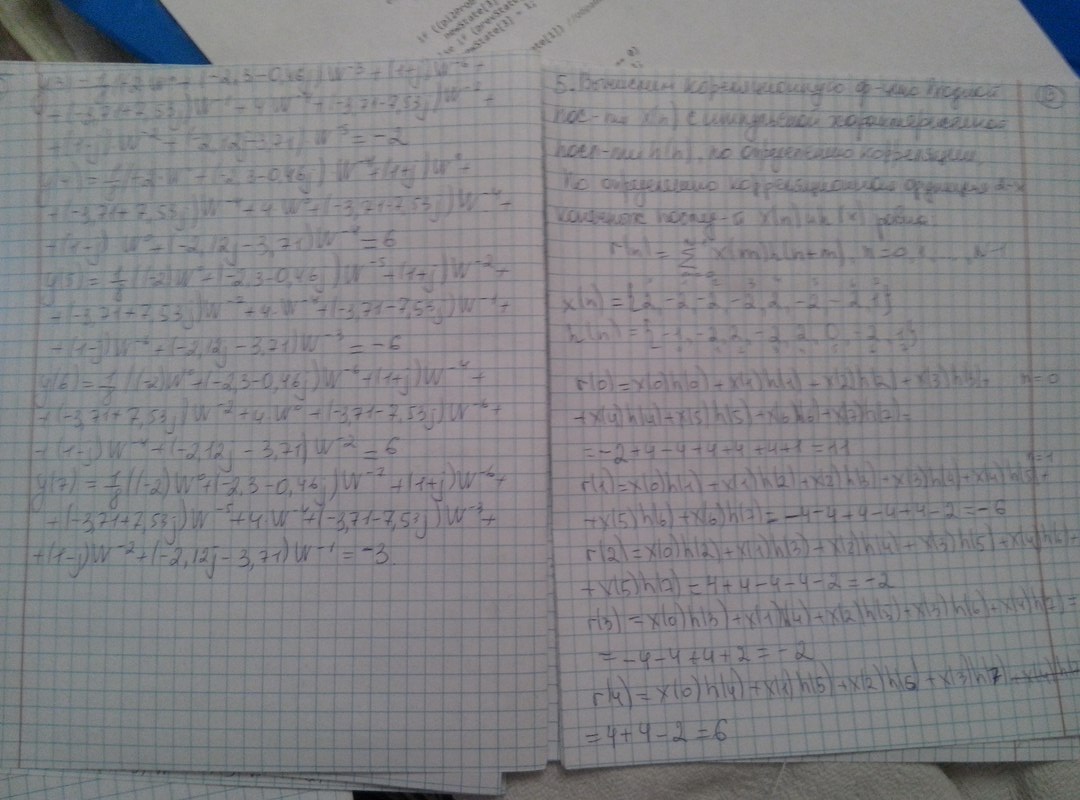 if ((olzero
newState[3]
if (prevState
newState[3] = 1;
y(3) = 1/8 (-2 W⁰ + (-2,3-0,46j) W⁻³ + (1+j) W⁻⁶ +
+ (-3,71+7,53j) W⁻¹ + 4 W⁻⁴ + (-3,71-7,53j) W⁻⁷ +
+ (1-j) W⁻² + (-2,12j-3,71) W⁻⁵ = -2
+ (-3,71+7,53j) W⁻⁴ + 4 W⁰ + (-3,71-7,53j) W⁻⁴ +
+ (1-j) W⁰ + (-2,12j-3,71) W⁻⁴ = 6
y(5) = 1/8 ((-2) W⁰ + (-2,3-0,46j) W⁻⁵ + (1+j) W⁻² +
+ (-3,71+7,53j) W⁻⁷ + 4 W⁻⁴ + (-3,71-7,53j) W⁻¹ +
+ (1-j) W⁻⁶ + (-2,12j-3,71) W⁻³ = -6
y(6) = 1/8 ((-2) W⁰ + (-2,3-0,46j) W⁻⁶ + (1+j) W⁻⁴ +
+ (-3,71+7,53j) W⁻² + 4 W⁰ + (-3,71-7,53j) W⁻⁶ +
+ (1-j) W⁻⁴ + (-2,12j-3,71) W⁻² = 6
y(7) = 1/8 ((-2) W⁰ + (-2,3-0,46j) W⁻⁷ + (1+j) W⁻⁶ +
+ (-3,71+7,53j) W⁻⁵ + 4 W⁻⁴ + (-3,71-7,53j) W⁻³ +
+ (1-j) W⁻² + (-2,12j-3,71) W⁻¹ = -3.
5. Вычислим корреляционную ф-цию входной
пос-ти x(n) с импульсной характеристикой
посл-ти h(n), по определению корреляции.
По определению корреляционной функции 2-х
конечных послед-й x(n) и h(n) равна:
r(n) = Σ x(m)h(n+m), n=0,1,..., N-1
x(n) = {2, -2, -2, -2, 2, -2, -2, 1}
h(n) = {-1, -2, 2, -2, 2, 0, -2, 1}
r(0) = x(0)h(0) + x(1)h(1) + x(2)h(2) + x(3)h(3) + n=0
+ x(4)h(4) + x(5)h(5) + x(6)h(6) + x(7)h(7) =
= -2+4-4+4+4+4+1 = 11
r(1) = x(0)h(1) + x(1)h(2) + x(2)h(3) + x(3)h(4) + x(4)h(5) +
+ x(5)h(6) + x(6)h(7) = -4-4+4-4+4-2 = -6
r(2) = x(0)h(2) + x(1)h(3) + x(2)h(4) + x(3)h(5) + x(4)h(6) +
+ x(5)h(7) = 4+4-4-4-2 = -2
r(3) = x(0)h(3) + x(1)h(4) + x(2)h(5) + x(3)h(6) + x(4)h(7) =
= -4-4+4+2 = -2
r(4) = x(0)h(4) + x(1)h(5) + x(2)h(6) + x(3)h(7)
= 4+4-2 = 6